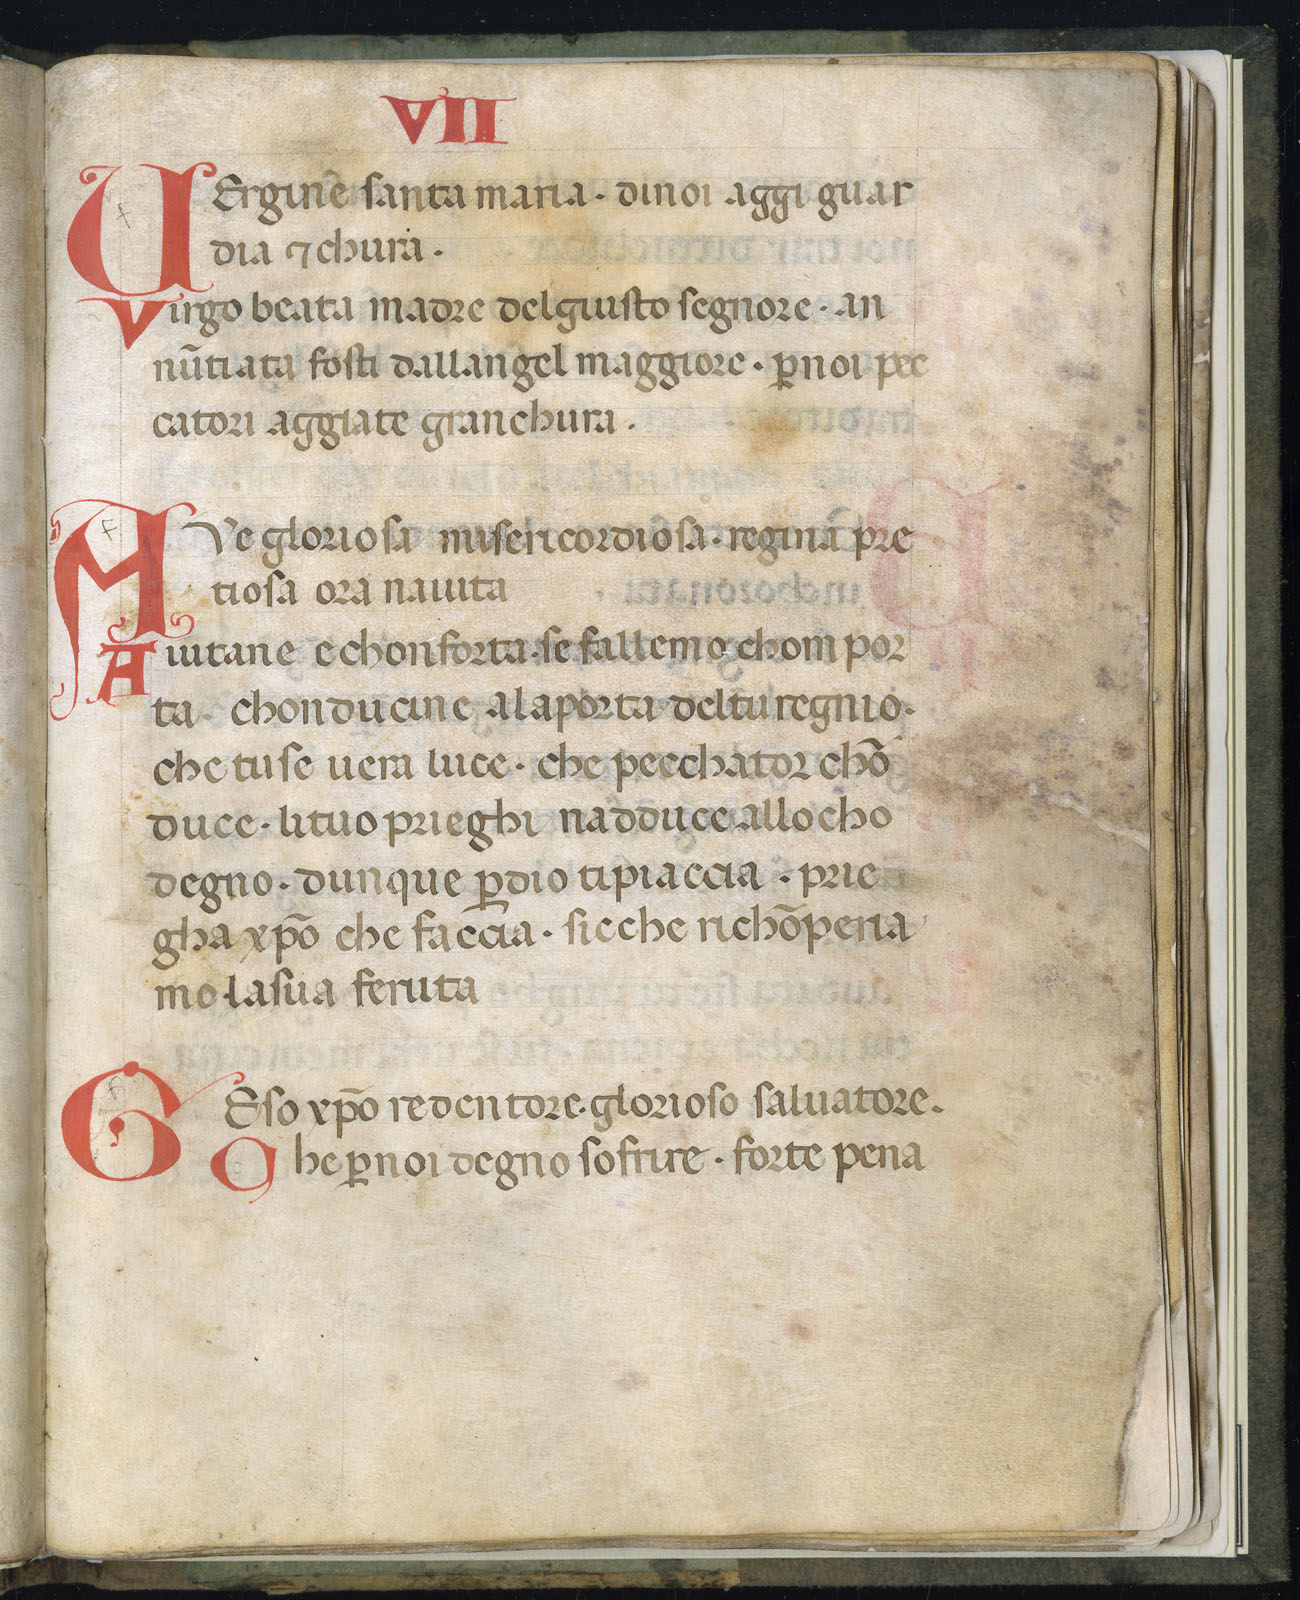 VII
UErgine santa maria · dinoi aggi guar
dia ⁊ chura ·
Virgo beata madre delgiusto segnore · an
nūtiata fosti dallangel maggiore · ꝑnoi pec
catori aggiate granchura ·
AVe gloriosa misericordiosa · regina pre
tiosa ora nauita
Aiutane e chonforta · se fallemo chom por
ta · chonducine alaporta deltu regnio ·
che tu se uera luce · che pecchator chō
duce · lituo prieghi nadduce allocho
degno · dunque ꝑdio tipiaccia · prie
gha xp̄o che faccia · sicche richōperia
mo · lasua feruta
GEso xp̄o redentore · glorioso saluatore ·
Che ꝑnoi degno sofrire · forte pena